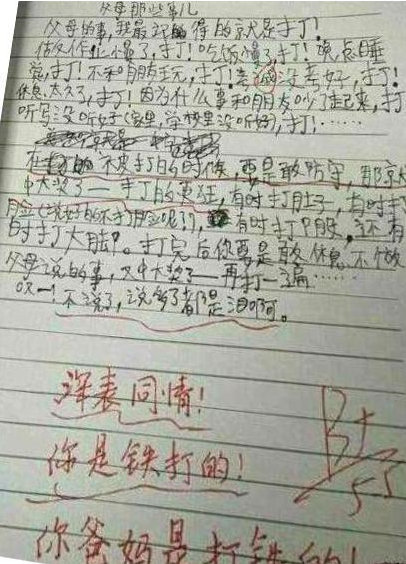 父母那些事儿
父母的事,我最记的得的就是打!
做反作业慢了,打!吃饭慢了,打!晚点睡
觉,打!不和朋友玩,打!考没考好,打!
休息太久了,打!因为什么事和朋友吵了起来,打
听写没听好(家里,学校里没听好),打!……
在打的不被打的时候,要是敢防守,那
中大奖了——打的更狂,有时打肚子,有时打
脸(说好的不打脸呢?),有时打P股,还有
时打大腿。打完后你要是敢休息不做
父母说的事,又中大奖了——再打一遍……
哎~!不说了,说多了都是泪啊。
深表同情!
你是铁打的!
B+
你爸妈是打铁的!